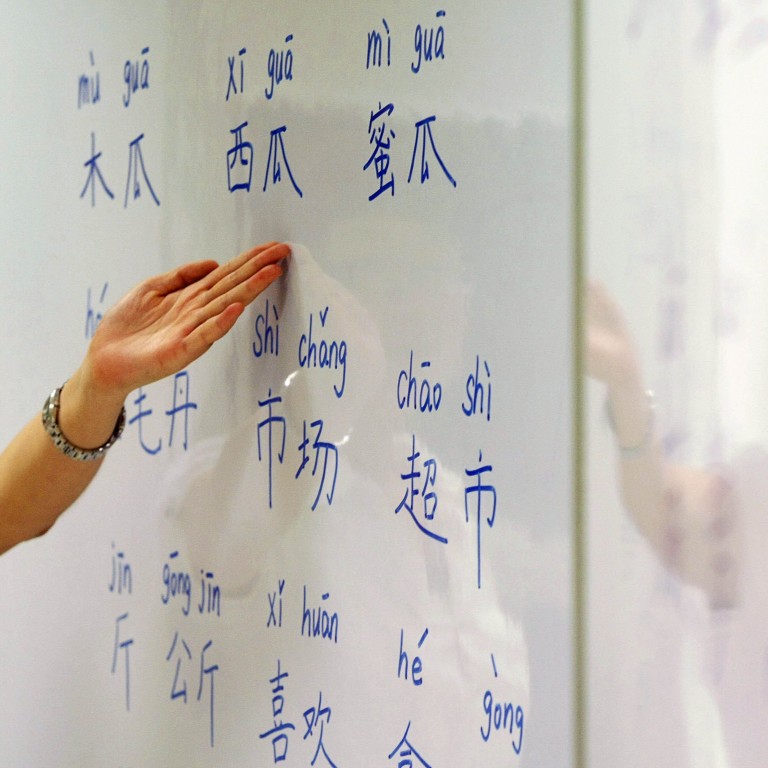 mù guā xī guā mì guā
木瓜 西瓜 蜜瓜
shì chǎng chāo shì
毛丹 市场 超市
jīn gōng jīn xǐ huān hé gòng
斤 公斤 喜欢